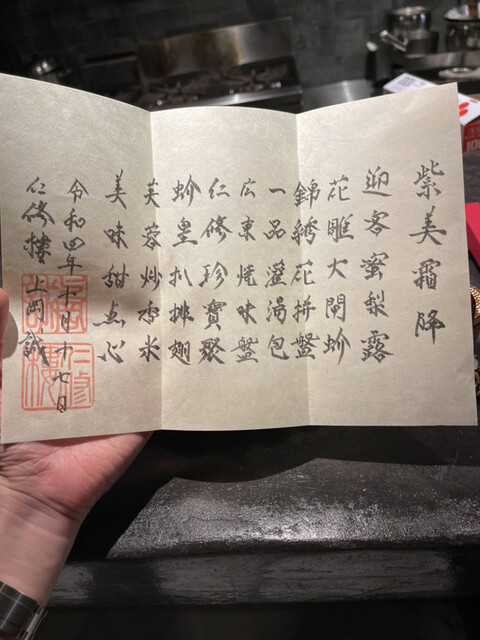 紫美霜降
迎客蜜梨露
花雕大閘蚧
錦綉花拼盤
一品灌湯包
広東焼味盤
仁修珍寶聚
蚧皇扒排翅
芙蓉炒香米
美味甜点心
令和四年十月十七日
仁修樓 上岡誠
仁修樓